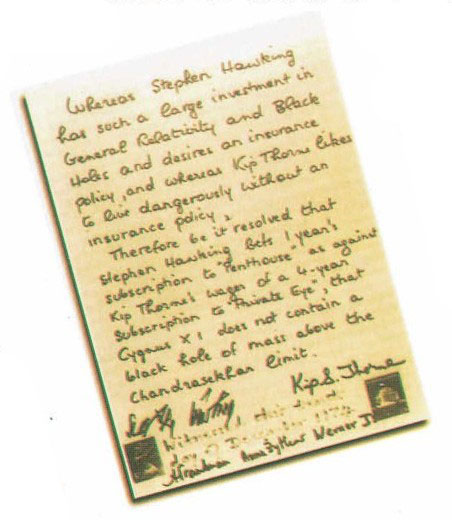 Whereas Stephen Hawking
has such a large investment in
General Relativity and Black
Holes and desires an insurance
policy, and whereas Kip Thorne likes
to live dangerously without an
insurance policy,
Therefore be it resolved that
Stephen Hawking Bets 1 year's
subscription to "Penthouse" as against
Kip Thorne's wager of a 4-year
Subscription to "Private Eye", that
Cygnus X 1 does not contain a
black hole of mass above the
Chandrasekhar limit.
Kip S. Thorne
Witnessed this
day of December
Werner